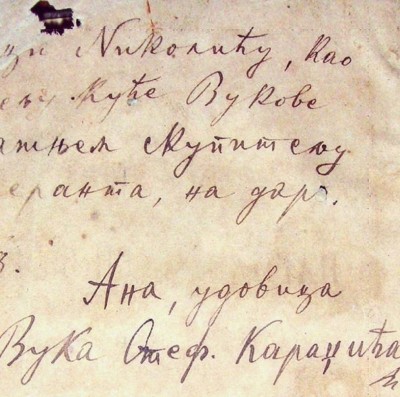 Николићу, као
куће Вукове
скупитељу
на дар.
Ана, удовица
Вука Стеф. Караџића